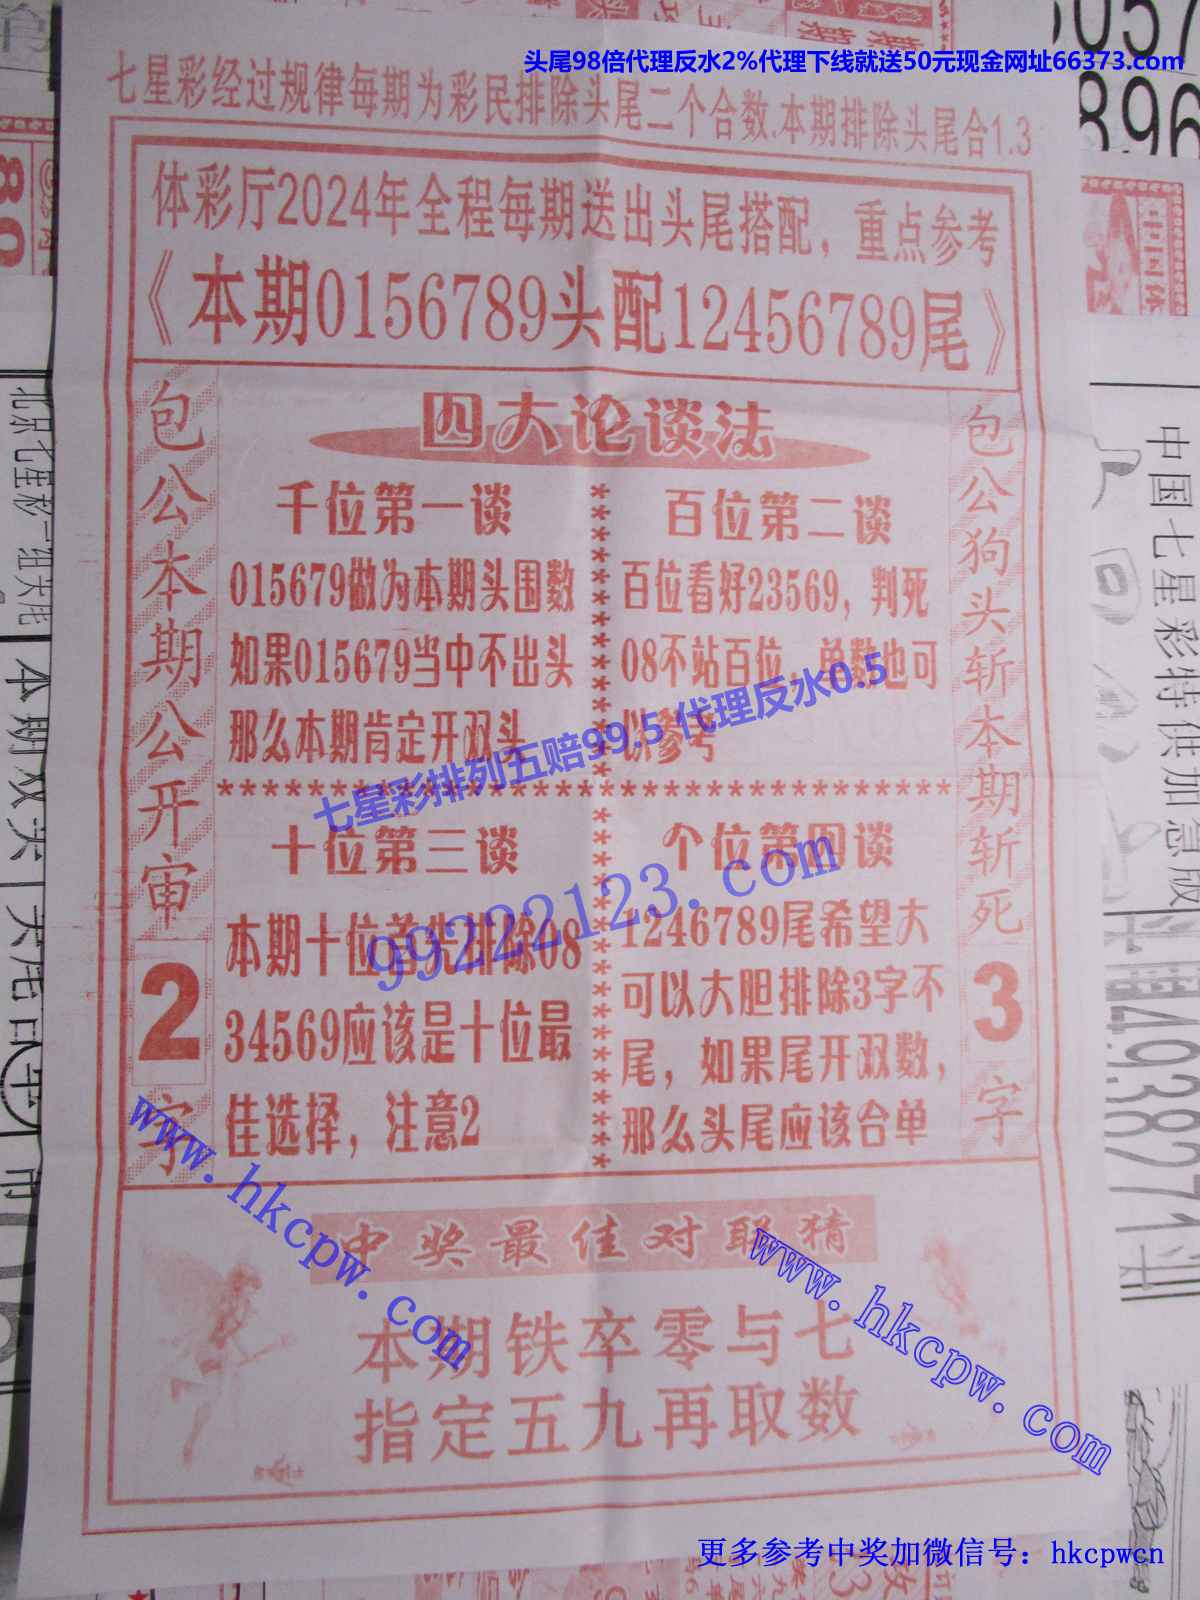 头尾98倍代理反水2%代理下线就送50元现金网址66373.com
七星彩经过规律每期为彩民排除头尾二个合数.本期排除头尾合1.3
体彩厅2024年全程每期送出头尾搭配，重点参考
《本期0156789头配12456789尾》
包公本期公开审2字
四大论谈法
千位第一谈
015679做为本期头围数
如果015679当中不出头
那么本期肯定开双头
百位第二谈
百位看好23569，判死
08不站百位，单数也可
以参考
七星彩排列五赔99.5 代理反水0.5
十位第三谈
本期十位首先排除08
34569应该是十位最
佳选择，注意2
个位第四谈
1246789尾希望大
可以大胆排除3字不
尾，如果尾开双数，
那么头尾应该合单
99222123.com
包公狗头斩本期斩死3字
www.hkcpw.com
www.hkcpw.com
中奖最佳对联猜
本期铁卒零与七
指定五九再取数
更多参考中奖加微信号：hkcpwcn
中国七星彩特供加急版
本期双头
896
中国体